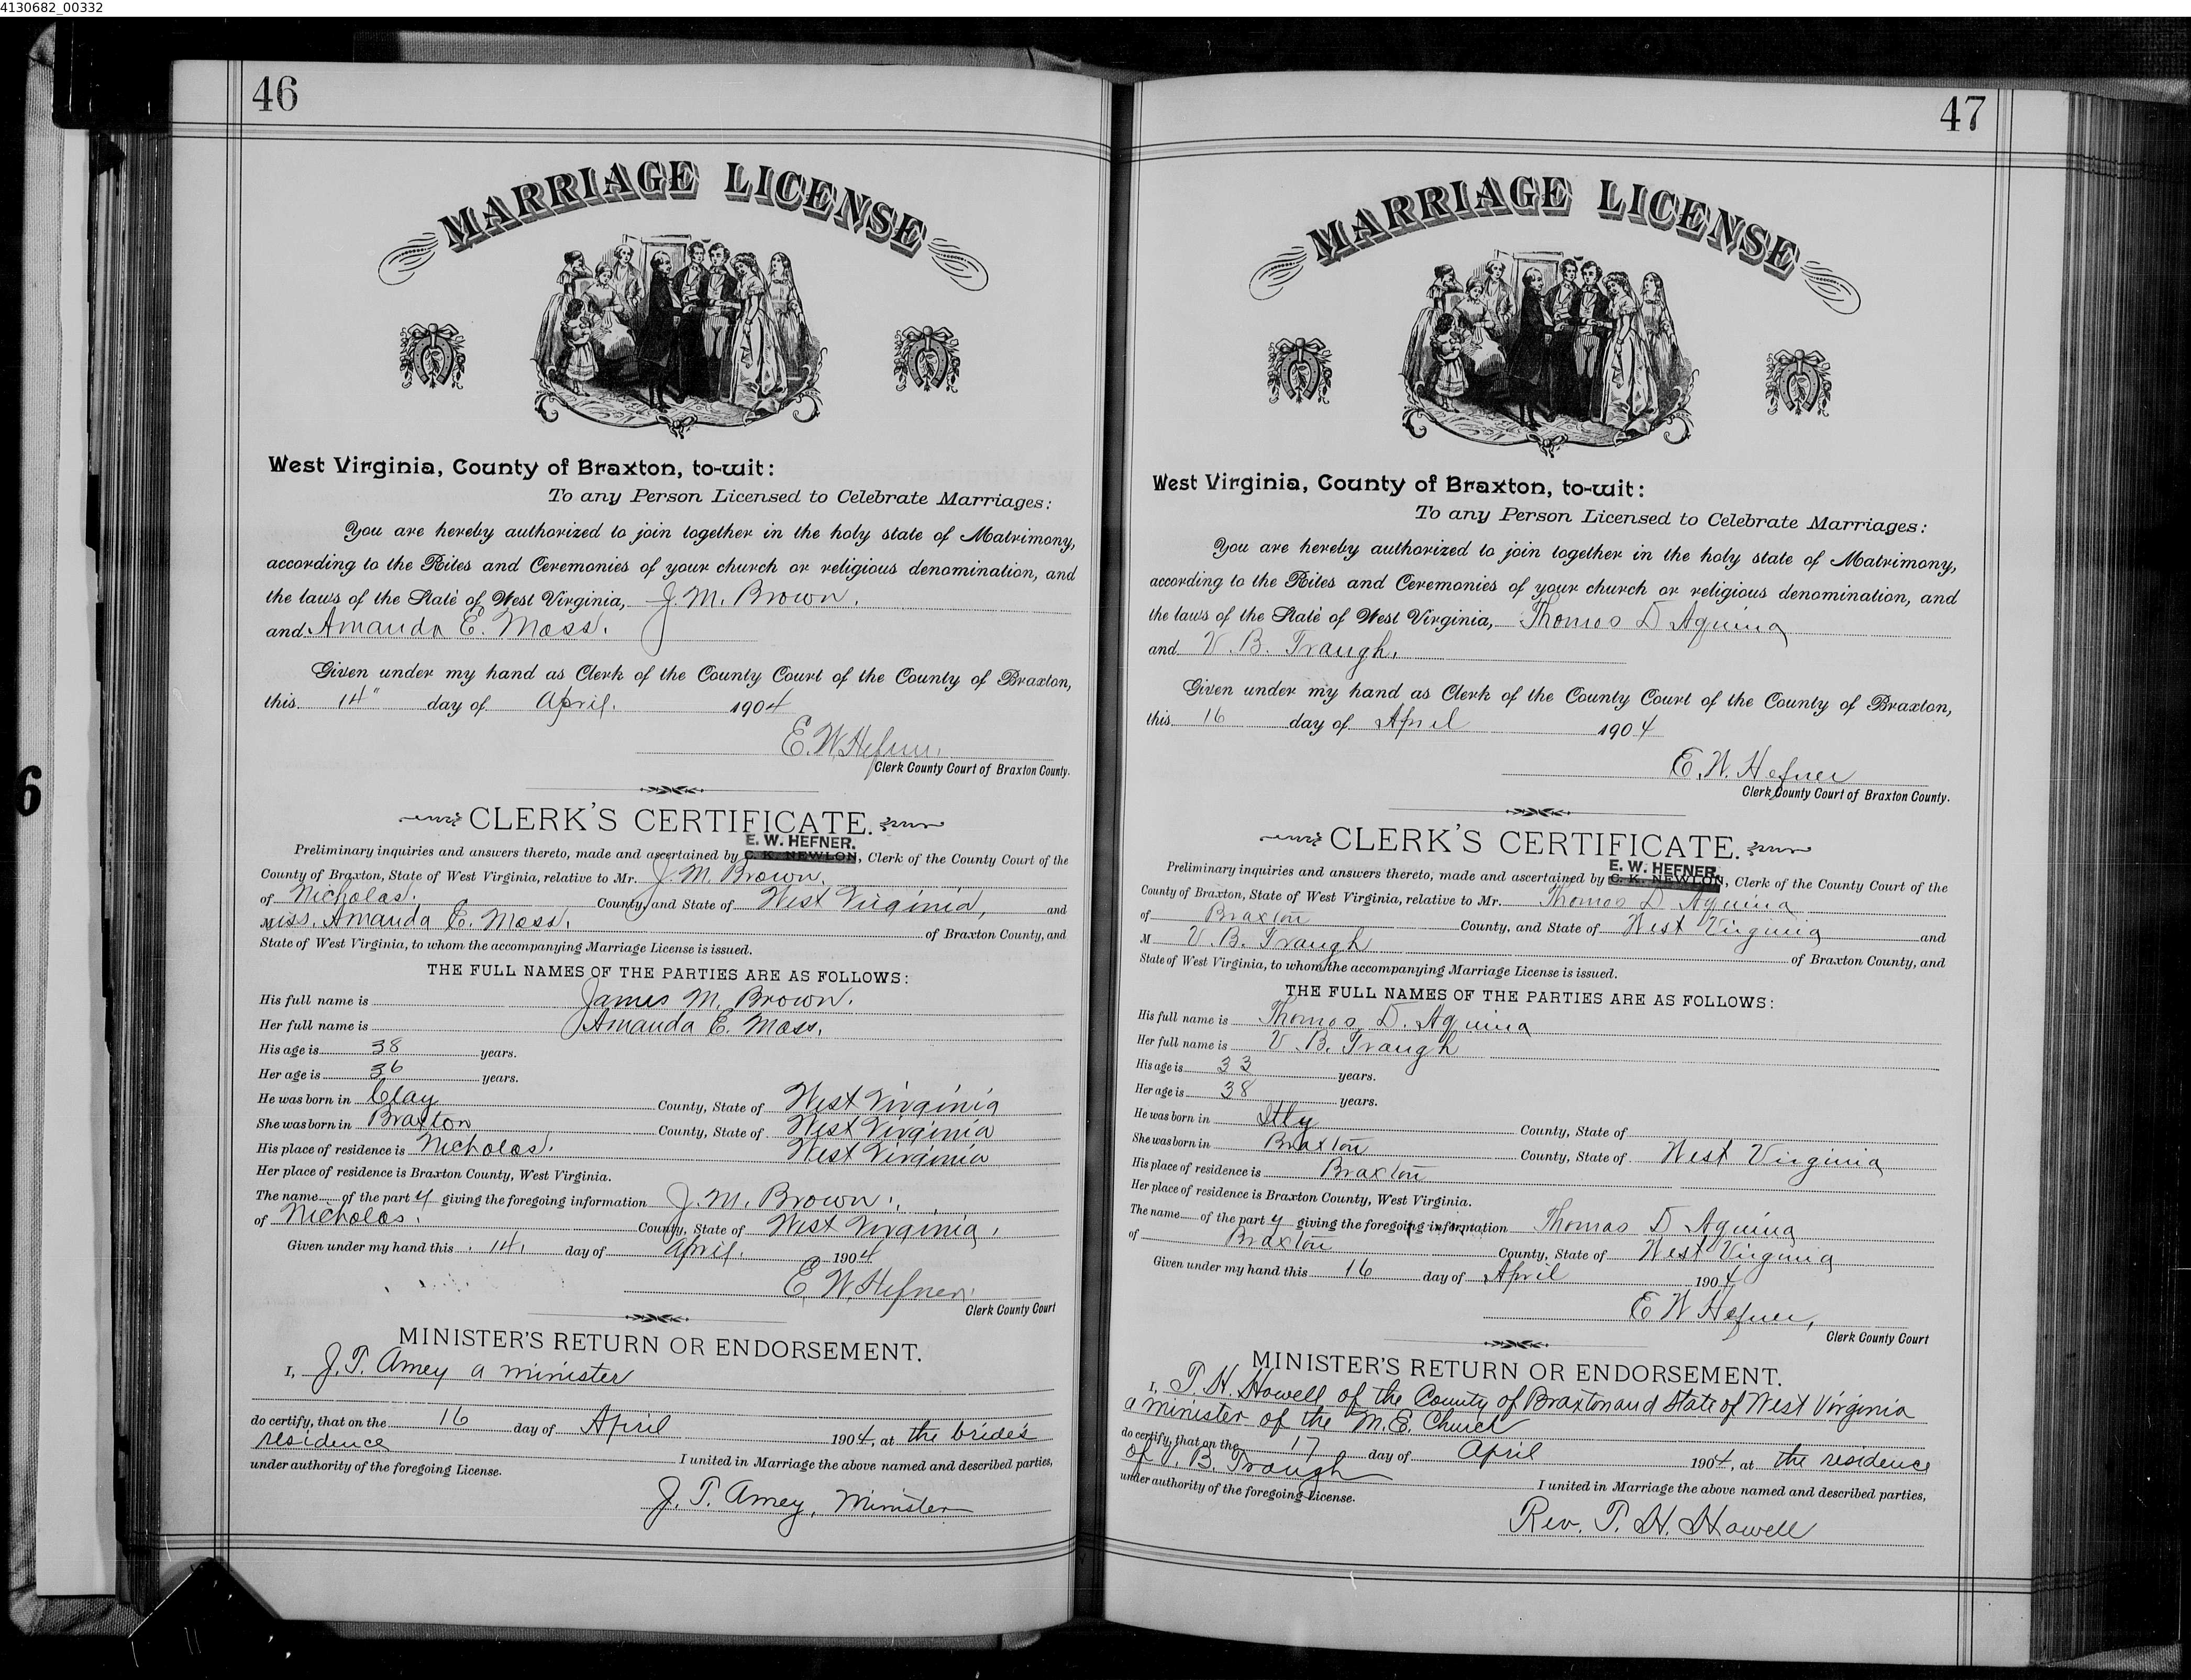 4130682_00332
46
MARRIAGE LICENSE
West Virginia, County of Braxton, to-wit:
To any Person Licensed to Celebrate Marriages:
You are hereby authorized to join together in the holy state of Matrimony,
according to the Rites and Ceremonies of your church or religious denomination, and
the laws of the State of West Virginia, J. M. Brown.
and Amanda E. Moss.
Given under my hand as Clerk of the County Court of the County of Braxton,
this 14" day of April. 1904
E. W. Hefner.
Clerk County Court of Braxton County.
CLERK'S CERTIFICATE.
E. W. HEFNER.
Preliminary inquiries and answers thereto, made and ascertained by C. K. NEWLON, Clerk of the County Court of the
County of Braxton, State of West Virginia, relative to Mr. J. M. Brown.
of Nicholas. County, and State of West Virginia, and
Miss. Amanda E. Moss. of Braxton County, and
State of West Virginia, to whom the accompanying Marriage License is issued.
THE FULL NAMES OF THE PARTIES ARE AS FOLLOWS:
His full name is James M. Brown.
Her full name is Amanda E. Moss.
His age is 38 years.
Her age is 36 years.
He was born in Clay County, State of West Virginia
She was born in Braxton County, State of West Virginia
His place of residence is Nicholas. West Virginia
Her place of residence is Braxton County, West Virginia.
The name of the party giving the foregoing information J. M. Brown.
of Nicholas. County, State of West Virginia,
Given under my hand this 14, day of April. 1904
E. W. Hefner.
Clerk County Court
MINISTER'S RETURN OR ENDORSEMENT.
I, J. T. Amey a minister
do certify, that on the 16 day of April 1904, at the bride's
residence I united in Marriage the above named and described parties,
under authority of the foregoing License.
J. T. Amey, Minister
47
MARRIAGE LICENSE
West Virginia, County of Braxton, to-wit:
To any Person Licensed to Celebrate Marriages:
You are hereby authorized to join together in the holy state of Matrimony,
according to the Rites and Ceremonies of your church or religious denomination, and
the laws of the State of West Virginia, Thomas D Aquina
and V. B. Traugh.
Given under my hand as Clerk of the County Court of the County of Braxton,
this 16 day of April 1904
E. W. Hefner
Clerk County Court of Braxton County.
CLERK'S CERTIFICATE.
E. W. HEFNER.
Preliminary inquiries and answers thereto, made and ascertained by C. K. NEWLON, Clerk of the County Court of the
County of Braxton, State of West Virginia, relative to Mr. Thomas D Aquina
of Braxton County, and State of West Virginia and
M V. B. Traugh of Braxton County, and
State of West Virginia, to whom the accompanying Marriage License is issued.
THE FULL NAMES OF THE PARTIES ARE AS FOLLOWS:
His full name is Thomas D. Aquina
Her full name is V. B. Traugh
His age is 33 years.
Her age is 38 years.
He was born in Itly County, State of
She was born in Braxton County, State of West Virginia
His place of residence is Braxton
Her place of residence is Braxton County, West Virginia.
The name of the party giving the foregoing information Thomas D Aquina
of Braxton County, State of West Virginia
Given under my hand this 16 day of April 1904
E W Hefner,
Clerk County Court
MINISTER'S RETURN OR ENDORSEMENT.
I, T. H. Howell of the County of Braxton and State of West Virginia
a minister of the M. E. Church
do certify, that on the 17 day of April 1904, at the residence
of V. B. Traugh I united in Marriage the above named and described parties,
under authority of the foregoing License.
Rev. T. H. Howell
6